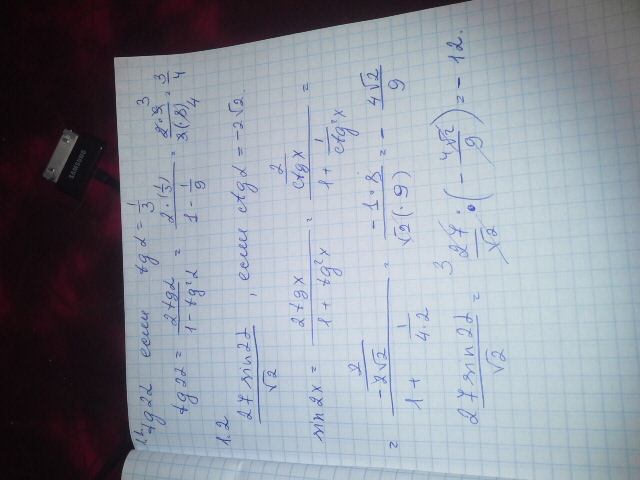 1.1 tg2α если tgα = 1/3
tg2α = 2tgα / (1 - tg²α) = 2·(1/3) / (1 - 1/9) = 2·9 / 3(·8) = 3/4
1.2
27 sin2α / √2, если ctgα = -2√2.
sin2x = 2tgx / (1 + tg²x) = (2 / ctgx) / (1 + 1/ctg²x) =
= (2 / -2√2) / (1 + 1/4·2) = -1·8 / √2(·9) = - 4√2 / 9
27 sin2α / √2 = 27 / √2 · (- 4√2 / 9) = -12.
SAMSUNG